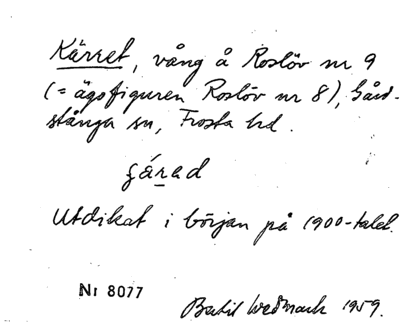 Kärret, vång å Roslöv nr 9
(= ägofiguren Roslöv nr 8), Gård-
stånga sn, Frosta hd.
Utdikat i början på 1900-talet.
Nr 8077
Bertil Wedmark 1959.